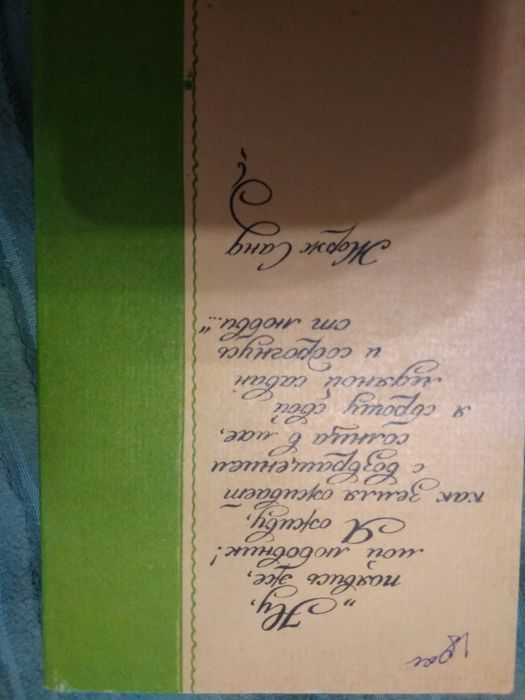 „Ну,
появись же,
мой любовник!
Я оживу,
как земля оживает
с возвращением
солнца в мае,
я сброшу свой
ледяной саван
и содрогнусь
от любви...“
Жорж Санд